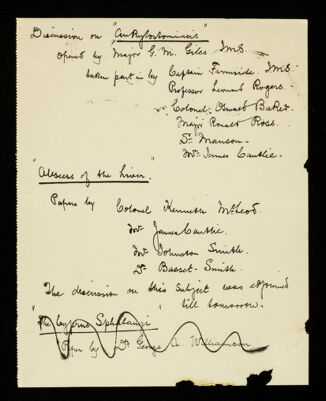 Discussion on "Ankylostomiasis"
opened by Major G. M. Giles IMS.
taken part in by Captain Fernside IMS.
Professor Leonard Rogers.
Colonel Oswald Baker.
Major Ronald Ross.
Dr Manson.
Mr James Cantlie.
"Abscess of the Liver."
Papers by Colonel Kenneth McLeod.
Mr James Cantlie.
Mr Johnston Smith.
Dr Basset-Smith.
The discussion on this subject was adjourned
till tomorrow.
"The Cyprus Sphalangi"
Paper by Dr George A. Williamson